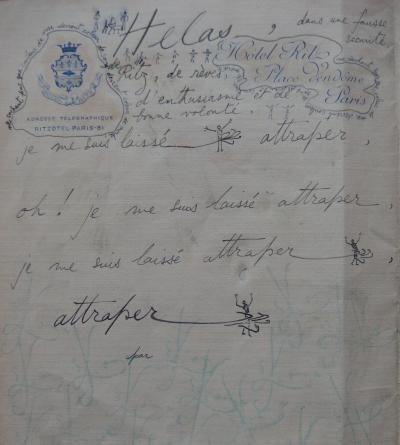 Helas,
dans une fausse
sécurité
Hôtel Ritz
Place Vendôme
Paris
de Ritz, de rêves,
d'enthusiasme et de
bonne volonté.
ADRESSE TÉLÉGRAPHIQUE
RITZOTEL-PARIS-81
je me suis laissé attraper,
oh! je me suis laissé attraper,
je me suis laissé attraper,
attraper
par